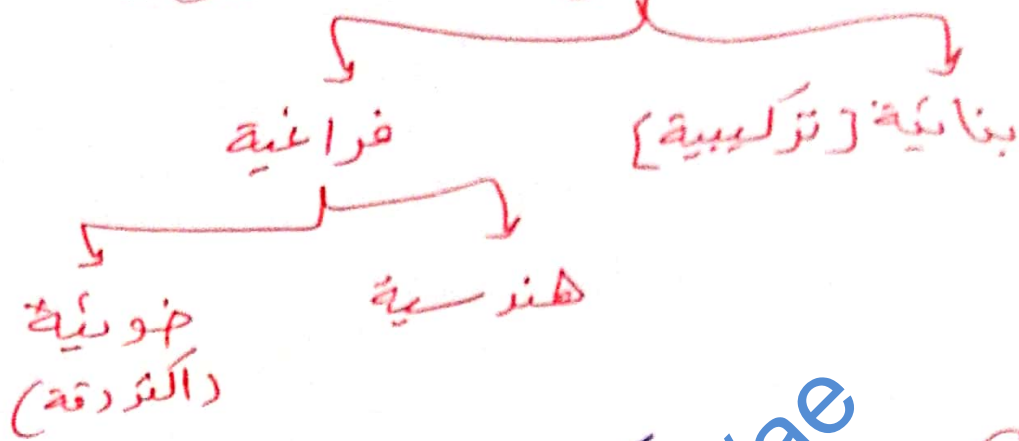 بنائية [تركيبية]
فراغية
هندسية
ضوئية
(اكثر دقة)
ae